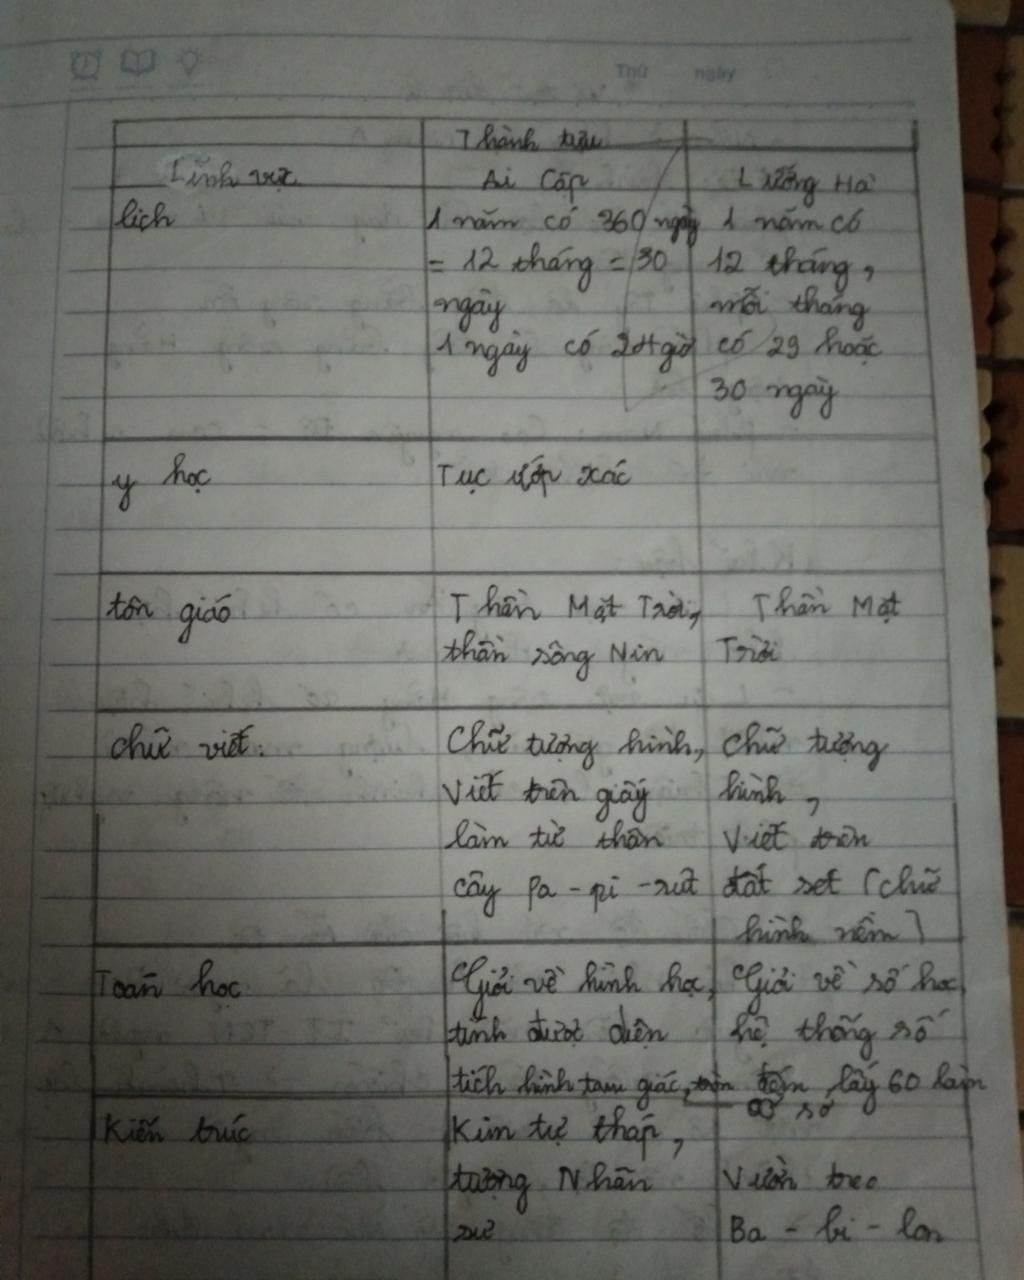 Thứ ngày
Thành tựu
Lĩnh vực Ai Cập Lưỡng Hà
lịch 1 năm có 360 ngày 1 năm có
= 12 tháng = 30 12 tháng,
ngày mỗi tháng
1 ngày có 24 giờ có 29 hoặc
30 ngày
y học Tục ướp xác
tôn giáo Thần Mặt Trời, Thần Mặt
thần sông Nin Trời
chữ viết: Chữ tượng hình, chữ tượng
Viết trên giấy hình,
làm từ thân Viết trên
cây Pa-pi-rút đất set (chữ
hình nêm)
Toán học Giỏi về hình học, Giỏi về số học
tính được diện hệ thống số
tích hình tam giác, tròn đếm lấy 60 làm
cơ số
Kiến trúc Kim tự tháp,
tượng Nhân Vườn treo
sư Ba-bi-lon